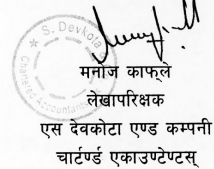 S. Devkota
Chartered Accountants
मनोज काफ्ले
लेखापरिक्षक
एस देवकोटा एण्ड कम्पनी
चार्टर्ण्ड एकाउण्टेण्टस्